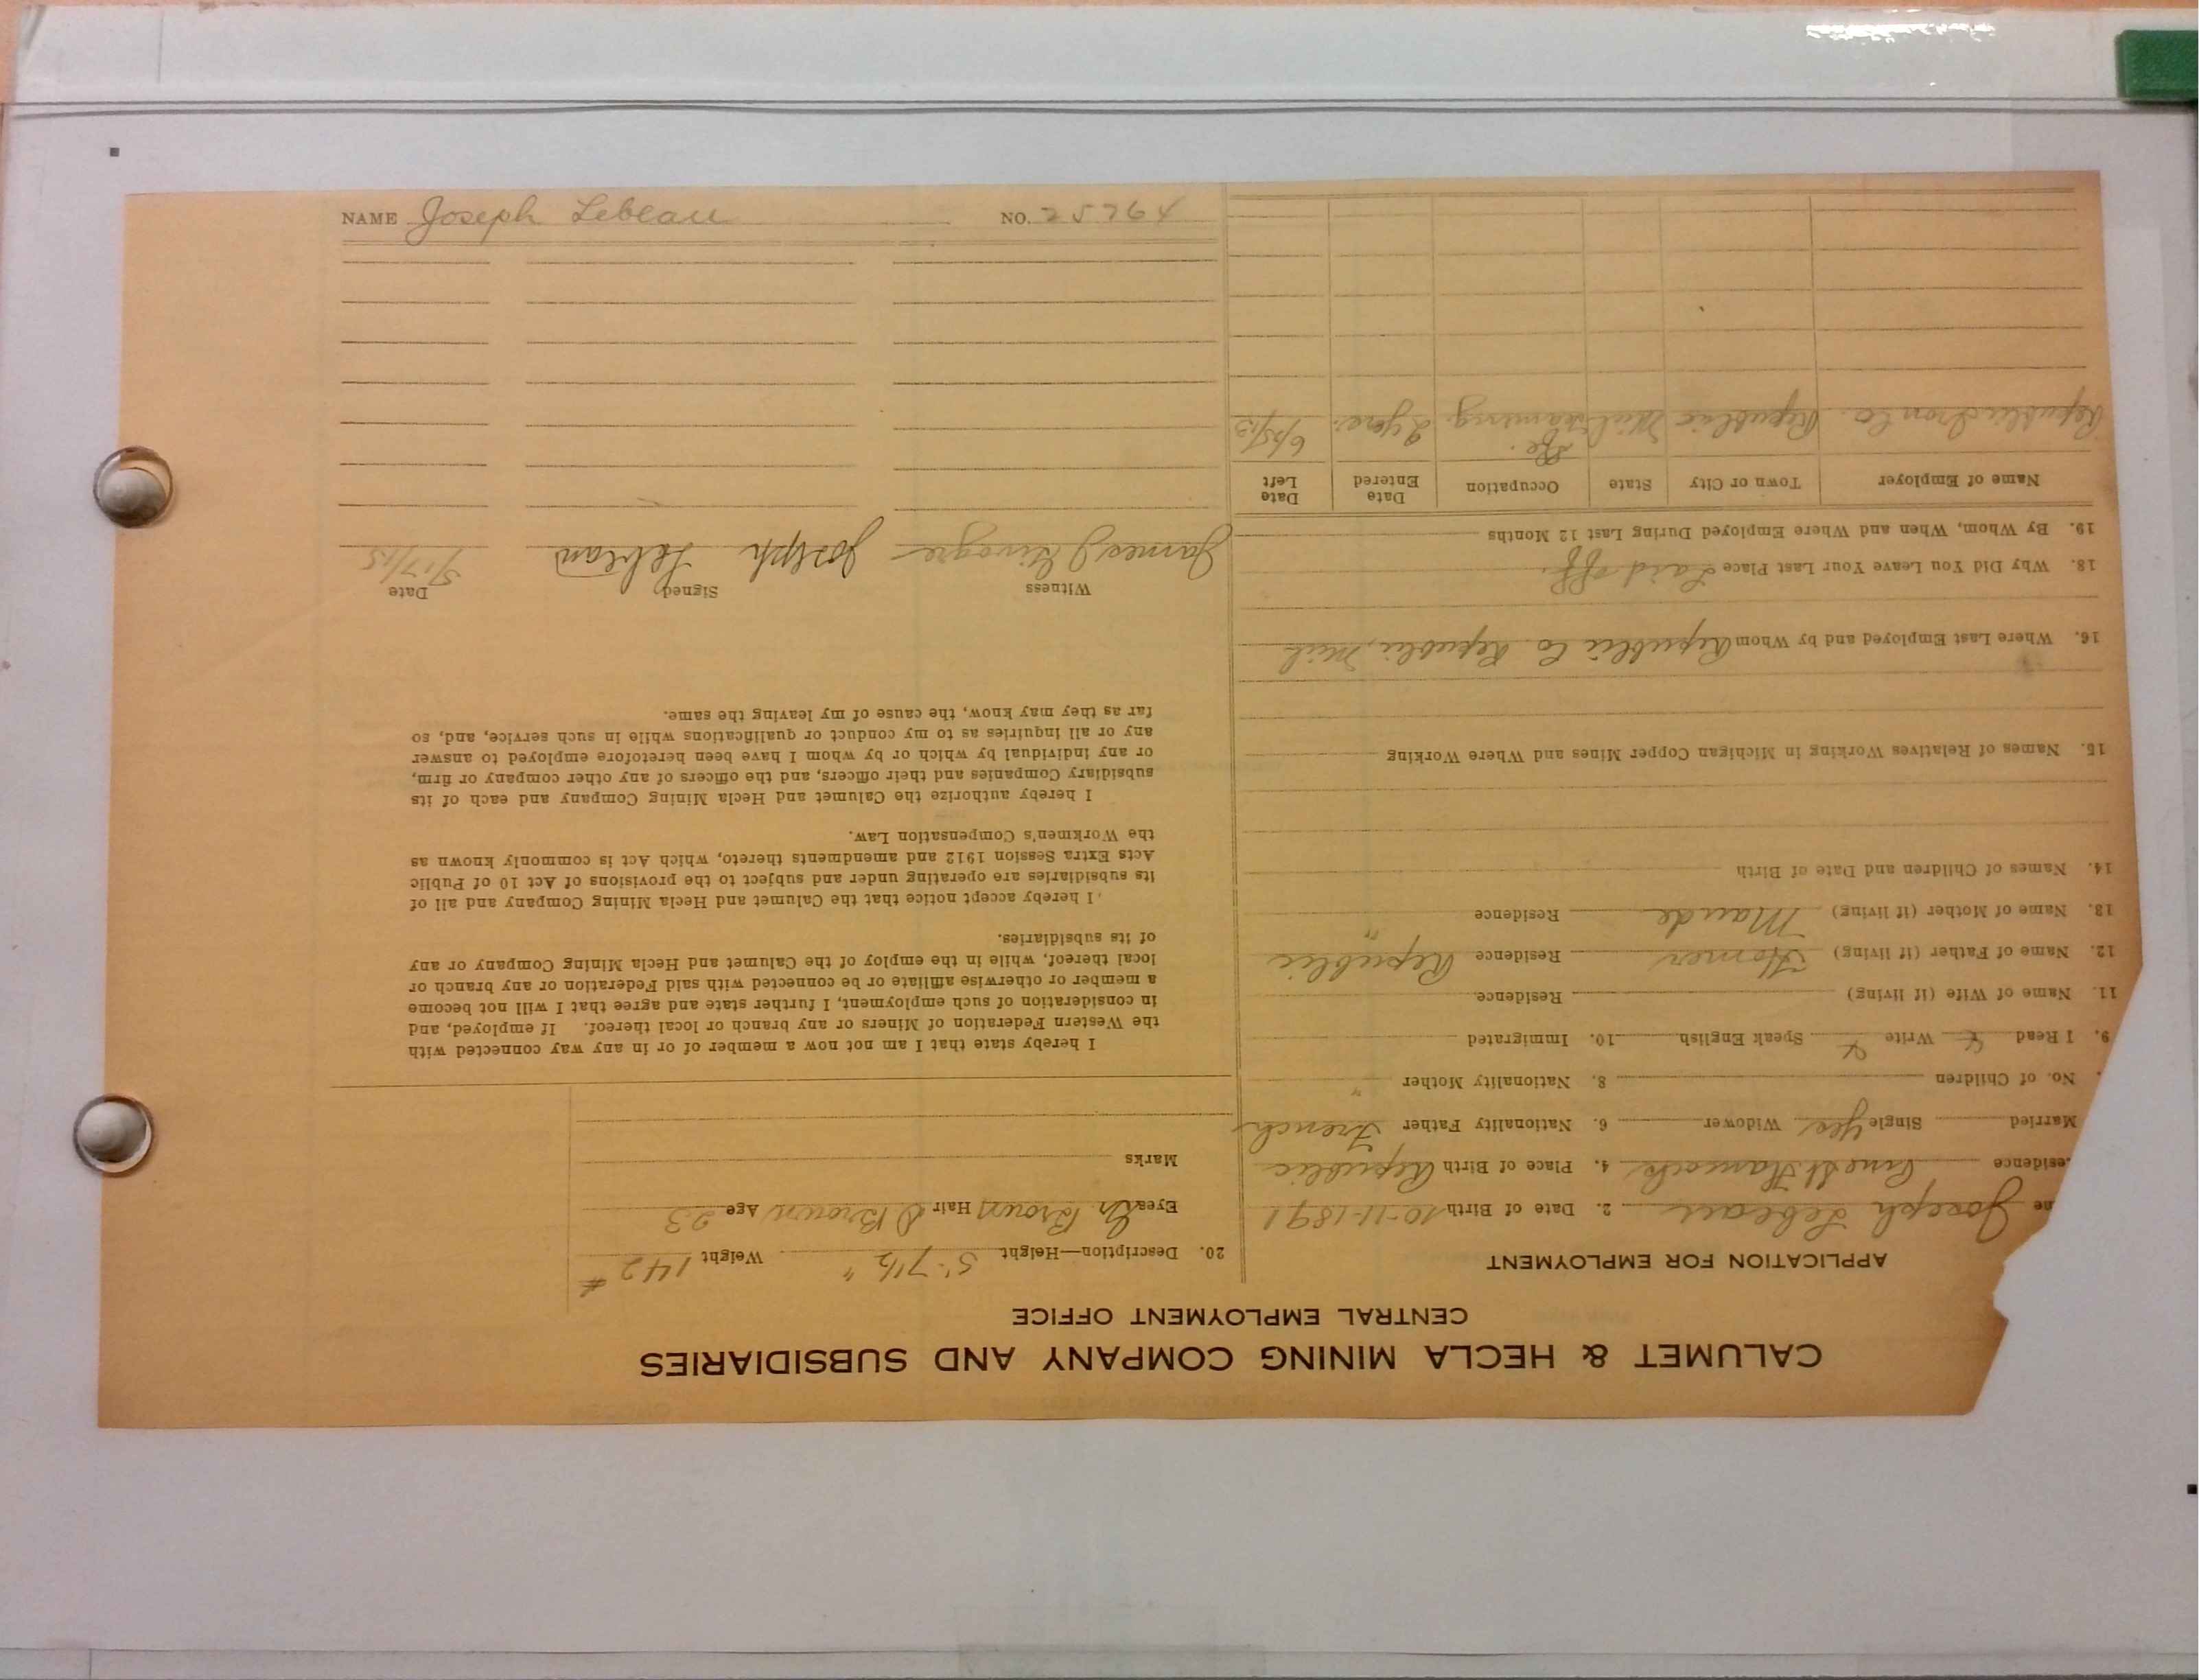 NAME Joseph Lebeau NO. 25764
CALUMET & HECLA MINING COMPANY AND SUBSIDIARIES
CENTRAL EMPLOYMENT OFFICE
APPLICATION FOR EMPLOYMENT
me Joseph Lebeau 2. Date of Birth 10-11-1891
esidence 4. Place of Birth Republic
Married Single Yes Widower 6. Nationality Father French
No. of Children 8. Nationality Mother "
9. I Read Write Speak English 10. Immigrated
11. Name of Wife (if living) Residence
12. Name of Father (if living) Homer Residence Republic
13. Name of Mother (if living) Maude Residence "
14. Names of Children and Date of Birth
15. Names of Relatives Working in Michigan Copper Mines and Where Working
16. Where Last Employed and by Whom Republic Co. Republic, Mich
18. Why Did You Leave Your Last Place Laid off.
19. By Whom, When and Where Employed During Last 12 Months
Name of Employer Town or City State Occupation Date Entered Date Left
Republic Iron Co. Republic Mich 2 yrs. 6/25/13
20. Description—Height 5'-7½" Weight 142 #
Eyes Brown Hair D Brown Age 23
Marks
I hereby state that I am not now a member of or in any way connected with
the Western Federation of Miners or any branch or local thereof. If employed, and
in consideration of such employment, I further state and agree that I will not become
a member or otherwise affiliate or be connected with said Federation or any branch or
local thereof, while in the employ of the Calumet and Hecla Mining Company or any
of its subsidiaries.
I hereby accept notice that the Calumet and Hecla Mining Company and all of
its subsidiaries are operating under and subject to the provisions of Act 10 of Public
Acts Extra Session 1912 and amendments thereto, which Act is commonly known as
the Workmen's Compensation Law.
I hereby authorize the Calumet and Hecla Mining Company and each of its
subsidiary Companies and their officers, and the officers of any other company or firm,
or any individual by which or by whom I have been heretofore employed to answer
any or all inquiries as to my conduct or qualifications while in such service, and, so
far as they may know, the cause of my leaving the same.
Witness Signed Date
James J Joseph Lebeau 5/17/15